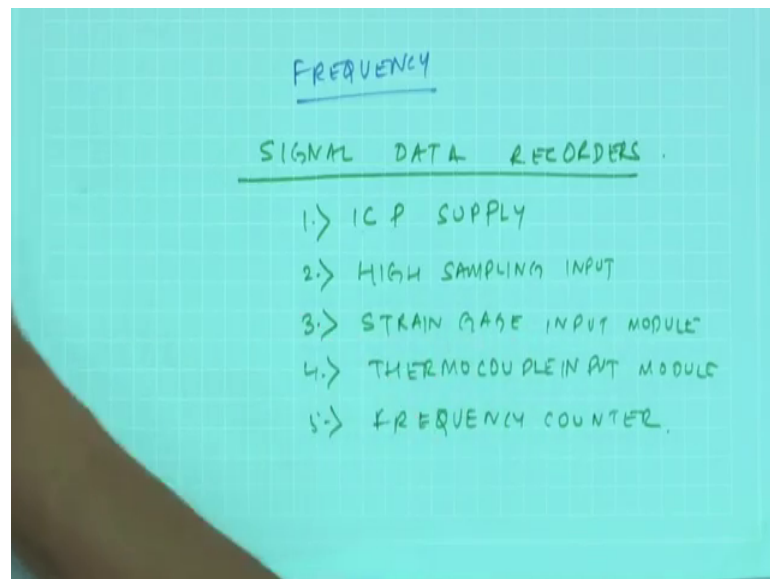 FREQUENCY
SIGNAL DATA RECORDERS.
1.> ICP SUPPLY
2.> HIGH SAMPLING INPUT
3.> STRAIN GAGE INPUT MODULE
4.> THERMOCOUPLE INPUT MODULE
5.> FREQUENCY COUNTER.